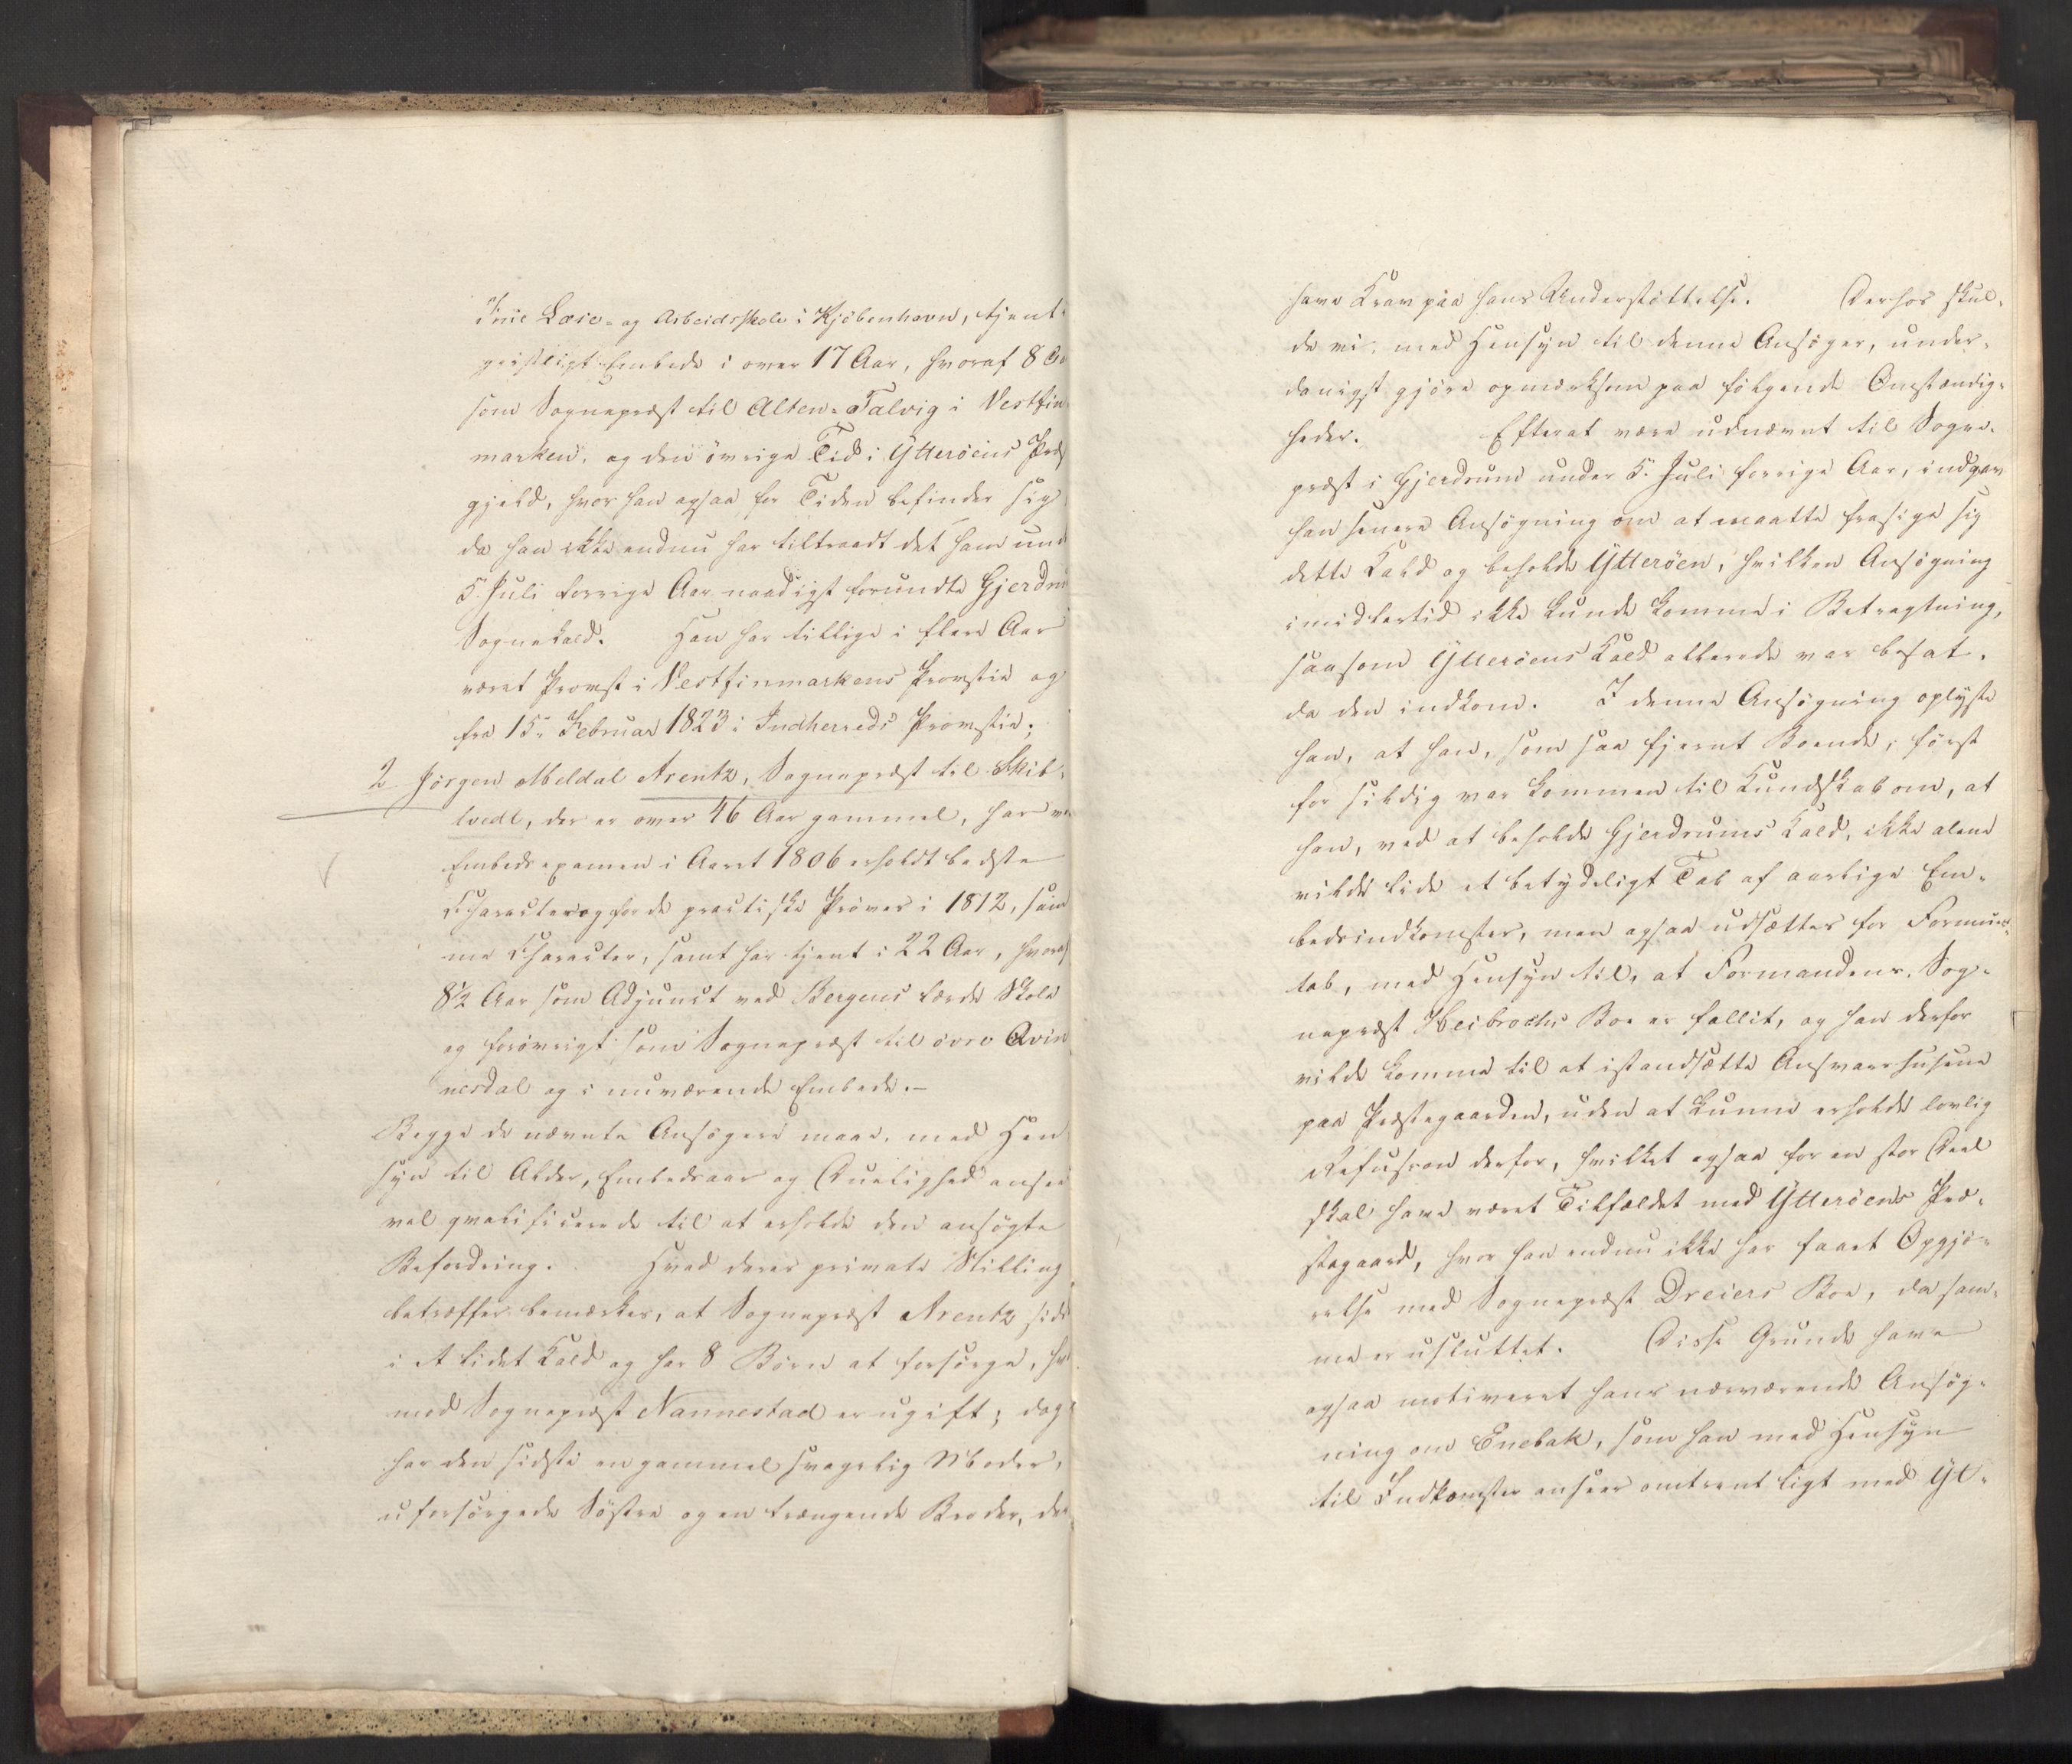 frie Lære- og Arbeidsskole i Kjöbenhavn, tjent i
geistligt Embede i over 17 Aar, hvoraf 8 Aa
som Sognepræst til Alten-Talvig i Vestfin
marken, og den övrige Tid i Ytteröens Præs
gjeld, hvor han ogsaa for Tiden befinder sig
da han ikke endnu har tiltraadt det ham und
5. Juli forrige Aar naadigst forundte Gjerdru
Sognekald. Han har tillige i flere Aar
været Provst i Vestfinmarkens Provstie og
fra 15. Februar 1823 i Indherreds Provstie;
2 Jörgen Meldal Arentz, Sognepræst til Skib-
tvedt, der er over 46 Aar gammel, har ve
Embedsexamen i Aaret 1806 erholdt bedste
Character og for de practiske Pröver i 1812, sam
me Character, samt har tjent i 22 Aar, hvoraf
8½ Aar som Adjunct ved Bergens lærde Skole
og forövrigt som Sognepræst til övre Qvin
nesdal og i nuværende Embede.-
Begge de nævnte Ansögere maae, med Hen
syn til Alder, Embedsaar og Duelighed ansee
vel qvalificerede til at erholde den ansögte
Befordring. Hvad deres private Stilling
betræffer bemærkes, at Sognepræst Arentz sidd
i et lidet Kald og har 8 Börn at forsörge, hvi
mod Sognepræst Nannestad er ugift; dog
har den sidste en gammel svagelig Moder,
uforsörgede Söstre og en trængende Broder, der
have Krav paa hans Understöttelse. Derhos skul-
de vi, med Hensyn til denne Ansöger, under-
danigst gjöre opmærksom paa fölgende Omstændig-
heder. Efterat være udnævnt til Sogne-
præst i Gjerdrum under 5. Juli forrige Aar, indgav
han senere Ansögning om at maatte frasige sig
dette Kald og beholde Ytteröen, hvilken Ansögning
imidlertid ikke kunde komme i Betragtning,
saasom Ytteröens Kald allerede var besat,
da den indkom. I denne Ansögning oplyste
han, at han, som saa fjernt Boende, först
for sildig var kommen til Kundskab om, at
han, ved at beholde Gjerdrums Kald, ikke alene
vilde lide et betydeligt Tab af aarlige Em-
bedsindkomster, men ogsaa udsættes for Formues-
tab, med Hensyn til, at Formandens, Sog-
nepræst Heibrochs Boe er fallit, og han derfor
vilde komme til at istandsætte Ansvarshusene
paa Præstegaarden, uden at kunne erholde lovlig
Refusion derfor, hvilket ogsaa for en stor Deel
skal have været Tilfældet med Ytteröens Præ-
stegaard, hvor han endnu ikke har faaet Opgjö-
relse med Sognepræst Dreiers Boe, da sam-
me er usluttet. Disse Grunde have
ogsaa motiveret hans nærværende Ansög-
ning om Enebak, som han med Hensyn
til Indkomster anseer omtrent ligt med Yt-